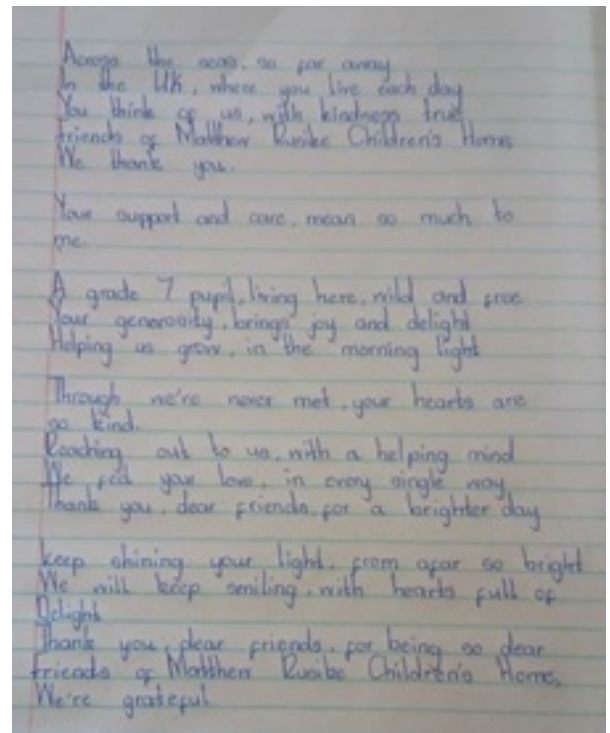 Across the seas, so far away
In the UK, where you live each day
You think of us, with kindness true
Friends of Matthew Rusike Children's Home,
We thank you.
Your support and care, mean so much to
me.
A grade 7 pupil, living here, wild and free
Your generosity, brings joy and delight
Helping us grow, in the morning light
Through we're never met, your hearts are
so kind.
Reaching out to us, with a helping mind
We feel your love, in every single way
Thank you, dear friends, for a brighter day
keep shining your light, from afar so bright
We will keep smiling, with hearts full of
Delight
Thank you, dear friends, for being so dear
Friends of Matthew Rusike Children's Home,
We're grateful